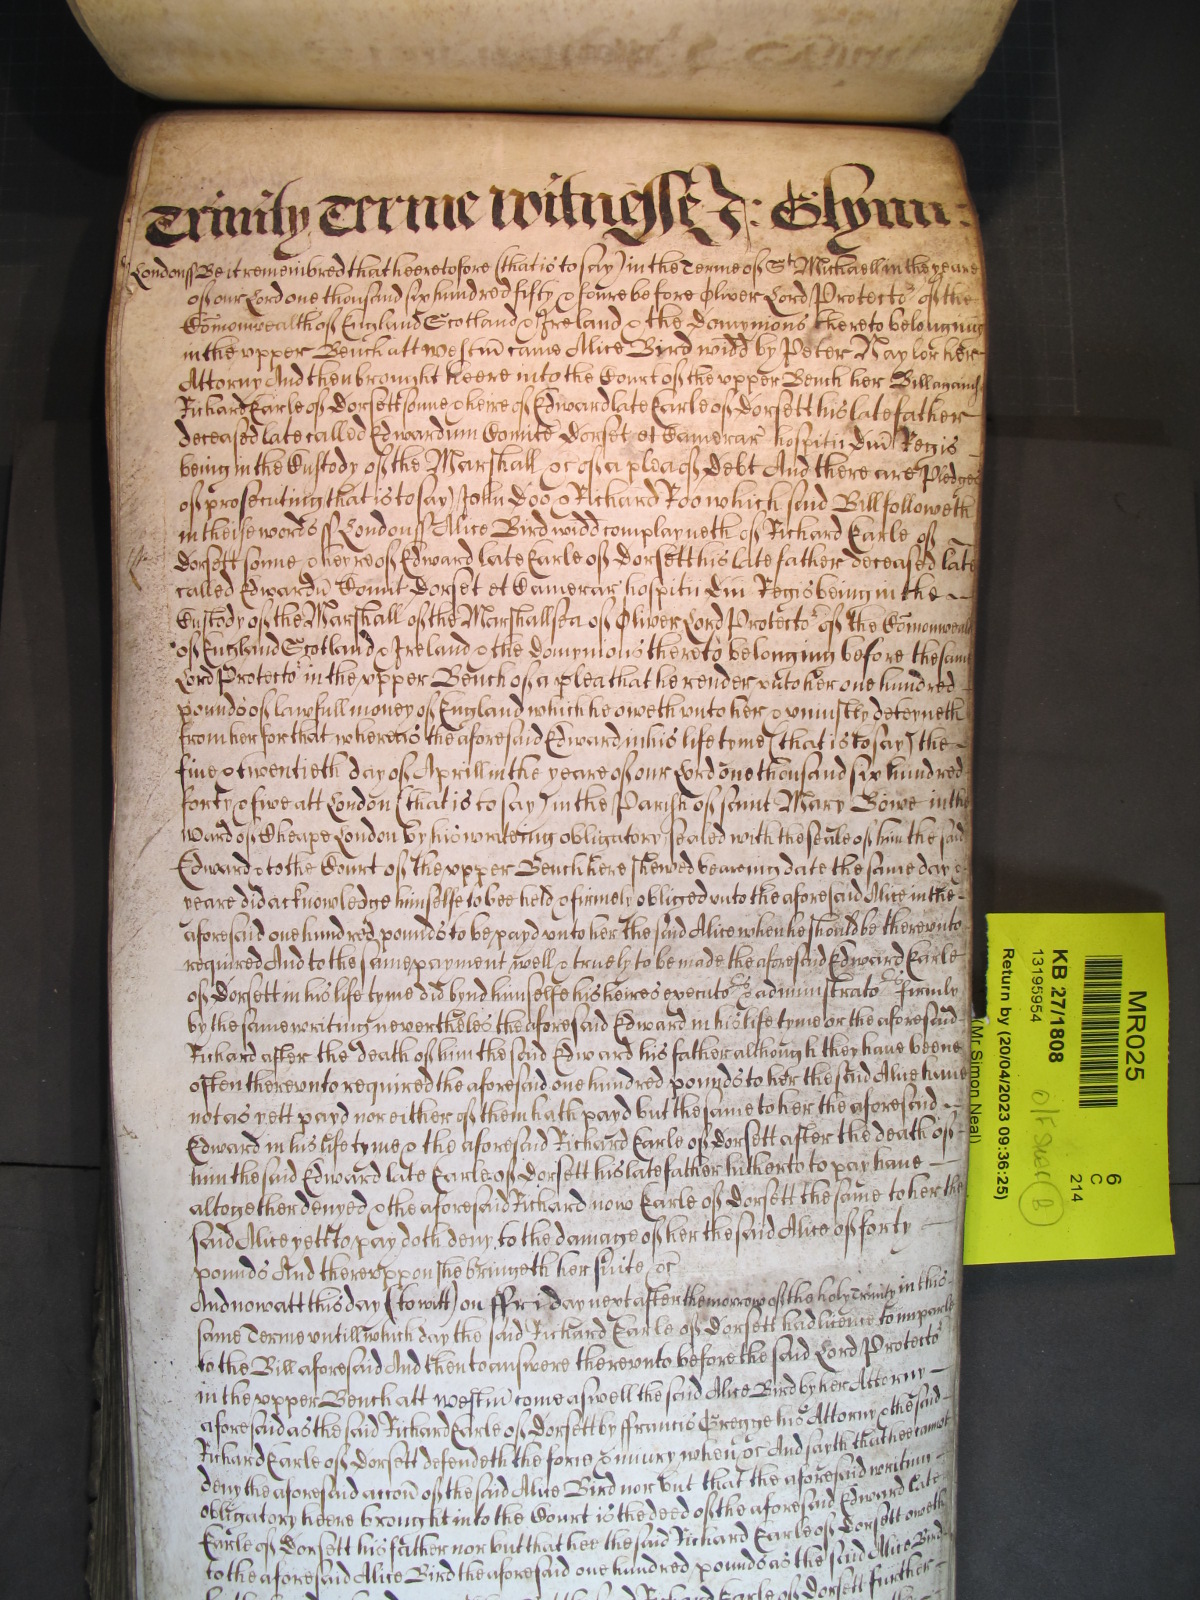 Trinity Terme witnesse J: Glynn:
London ss Be it remembred that heeretofore (that is to say) in the Terme of St Michaell in the yeare
of our Lord one thousand six hundred fifty & foure before Oliver Lord Protector of the
Comonwealth of England Scotland & Ireland & the domynions thereto belonging
in the vpper Bench att Westm came Alice Bird widd by Peter Naylor her
Attorny And then brought heere into the Court of the vpper Bench her Bill against
Richard Earle of Dorsett sonne & heire of Edward late Earle of Dorsett his late father
deceased late called Edwardum Comite Dorset et Camerar hospitii Dni Regis
being in the Custody of the Marshall &c of a plea of Debt And there are Pledges
of prosecuting that is to say) John Doo & Richard Roo which said Bill followeth
in theise words ss London ss Alice Bird widd complayneth of Richard Earle of
Dorsett sonne & heyre of Edward late Earle of Dorsett his late father deceased late
called Edwardu Comit Dorset et Camerar hospitii Dni Regis being in the
Custody of the Marshall of the Marshallsea of Oliver Lord Protector of the Comonwealth
of England Scotland & Ireland & the domynions thereto belonging before the same
Lord Protector in the vpper Bench of a plea that he render vnto her one hundred
pounds of lawfull money of England which he oweth vnto her & vniustly deteyneth
from her for that whereas the aforesaid Edward in his life tyme (that is to say) the
five & twentieth day of Aprill in the yeare of our Lord one thousand six hundred
forty & fiwe att London (that is to say) in the Parish of saint Mary Bowe in the
ward of Cheape London by his writeing obligatory sealed with the seale of him the said
Edward & to the Court of the vpper Bench heere shewed beareing date the same day &
yeare did acknowledge himselfe to bee held & firmely obliged vnto the aforesaid Alice in the
aforesaid one hundred pounds to be payd vnto her the said Alice when he should be therevnto
required And to the same payment well & truely to be made the aforesaid Edward Earle
of Dorsett in his life tyme did bynd himselfe his heires executors & administrators firmly
by the same writing neverthelesse the aforesaid Edward in his life tyme or the aforesaid
Richard after the death of him the said Edward his father although they have beene
often therevnto required the aforesaid one hundred pounds to her the said Alice have
not as yett payd nor either of them hath payd but the same to her the aforesaid
Edward in his life tyme & the aforesaid Richard Earle of Dorsett after the death of
him the said Edward late Earle of Dorsett his late father hitherto to pay have
altogether denyed & the aforesaid Richard now Earle of Dorsett the same to her the
said Alice yett to pay doth deny to the damage of her the said Alice of forty
pounds And therevppon she bringeth her suite &c
And now att this day (to witt) on ffriday next after the morrow of the holy Trinity in this
same Terme vntill which day the said Richard Earle of Dorsett had licence to imparle
to the Bill aforesaid And then to answere therevnto before the said Lord Protector
in the vpper Bench att Westm come aswell the said Alice Bird by her Attorny
aforesaid as the said Richard Earle of Dorsett by ffrancis Gregge his Attorny & the said
Richard Earle of Dorsett defendeth the force & iniury when &c And sayth that hee cannot
deny the aforesaid accon of the said Alice Bird nor but that the aforesaid writinge
obligatory heere brought into the Court is the deed of the aforesaid Edward late
Earle of Dorsett his father nor but that hee the said Richard Earle of Dorsett oweth
to the aforesaid Alice Bird the aforesaid one hundred pounds as the said Alice Bird
Richard Earle of Dorsett further
MR025
6
C
214
KB 27/1808
13195954
Return by (20/04/2023 09:36:25)
(Mr Simon Neal)